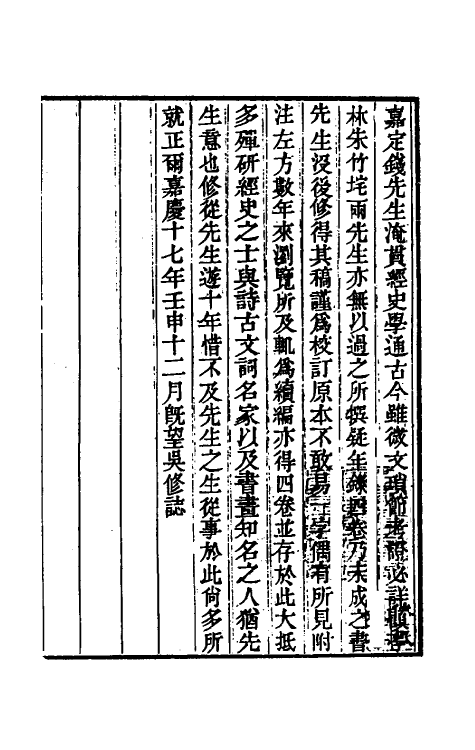 嘉定錢先生淹貫經史學通古今雖微文瑣節考證必詳顧
林朱竹垞兩先生亦無以過之所撰疑年錄四卷乃未成之書
先生沒後修得其稿謹為校訂原本不敢易一字偶有所見附
注左方數年來瀏覽所及輒為續編亦得四卷並存於此大抵
多殫研經史之士與詩古文詞名家以及書畫知名之人猶先
生意也修從先生遊十年惜不及先生之生從事於此尚多所
就正爾嘉慶十七年壬申十二月旣望吳修誌